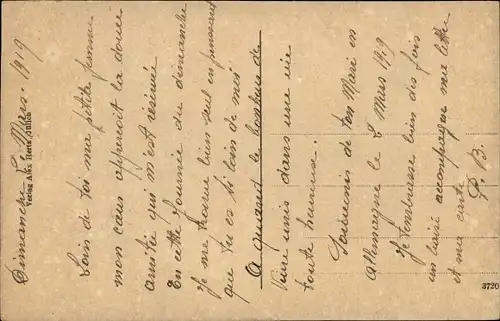 Dimanche 8 Mars. 1919
Loin de toi ma petite femme
mon cœur apperçoit la douce
amitié qui m'est réservée
En cette Journée du dimanche
Je me trouve bien seul en pensant
que tu es si loin de moi
A quand le bonheur de
Vivre unis dans une vie
toute heureuse.
Souvenir de ton Mari en
Allemagne le 8 Mars 1919
Je t'embrasse bien des fois
un baisé accompagne ma lettre
et ma carte
P. B.
Verlag Alex Hertz, Jülich
3720